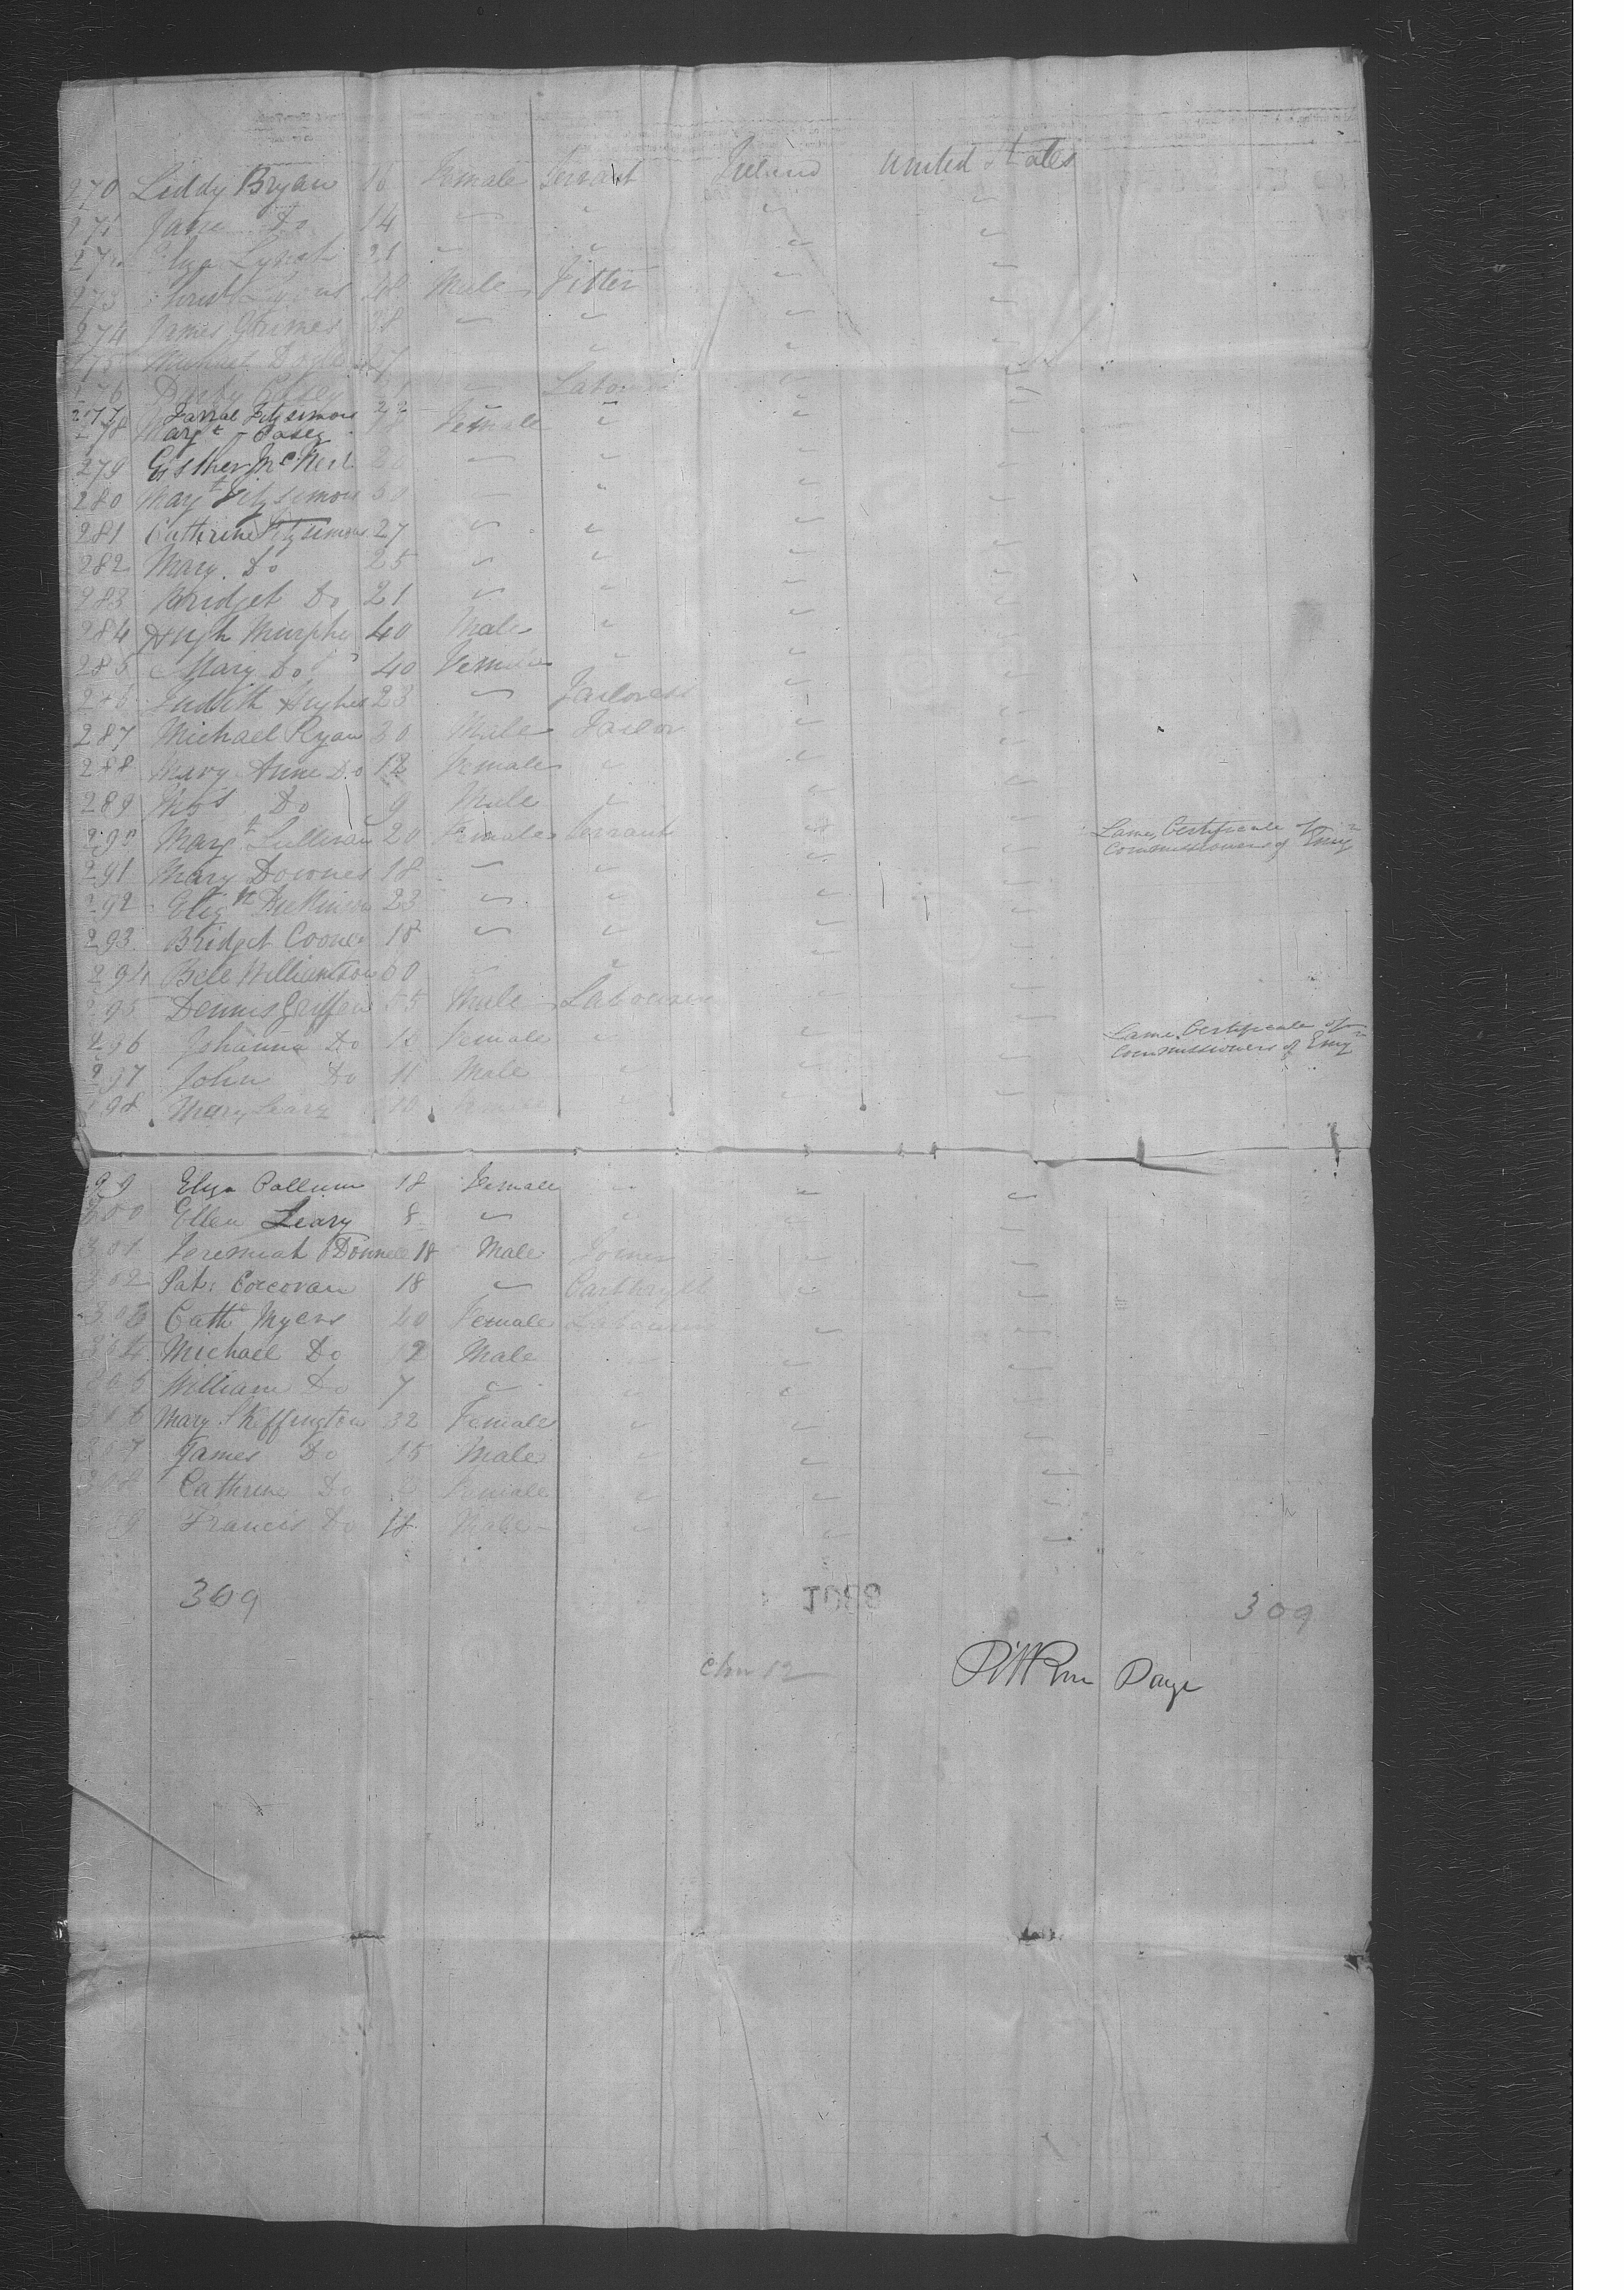 270 Liddy Bryan 16 Female Servant Ireland United States
271 Jane Do 14 " " " "
272 Eliza Lynch 21 " " " "
273 Christ Lyons 28 Male Fitter " "
274 James Grimes 28 " " " "
275 Michael Doyle 27 " " "
276 Darby Casey " Labourer " "
277 Farral Fitzsimons 22 " " "
278 Margt Casey Female " " "
279 Esther McNeil 20 " " " "
280 Margt Fitzsimons 50 " " " "
281 Cathrine Fitzsimons 27 " " " "
282 Mary Do 25 " " " "
283 Bridget Do 21 " " " "
284 Hugh Murphy 40 Male " " "
285 Mary Do 40 Female " " "
286 Judith Hughes 23 " Tailoress " "
287 Michael Ryan 30 Male Tailor " "
288 Mary Anne Do 12 Female " " "
289 Do 9 Male " " "
290 Margt Sullivan 20 Female Servant " " Lame, Certificate of
Commissioners of Emign
291 Mary Downes 18 " " " "
292 Elizth 23 " " " "
293 Bridget Cooney 18 " " " "
294 Bell Williamson 60 " " " "
295 Dennis Griffen 55 Male Labourer " "
296 Johanna Do 12 Female " " " Lame, Certificate of
Commissioners of Emign
297 John Do 11 Male " " "
298 Mary Leary 10 Female " " "
299 Eliza Callum 18 Female " " "
300 Ellen Leary 8 " " " "
301 Jeremiah O'Donnell 18 Male Joiner " "
302 Pat: Corcoran 18 " " "
303 Cathe Myers 40 Female Labourer " "
304 Michael Do 12 Male " " "
305 William Do 7 " " " "
306 Mary Skeffington 32 Female " " "
307 James Do 15 Male " " "
308 Cathrine Do Female " " "
309 Francis Do 18 Male " " "
309 309